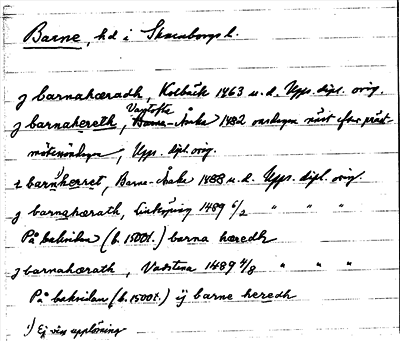 Barne, hd i Skaraborgs l.
j barnahæradh, Kolbäck 1463 u.d. Upps. dipl. orig.
j barnahereth, Vartofta Barne-Åsaka 1482 onsdagen näst efter präst-
mötesöndagen, Upps. dipl. orig.
t barnherret, Barne-Åsaka 1488 u.d. Upps. dipl. orig.
j barnahærath, Linköping 1489 6/2 " " "
På baksidan (b. 1500t.) barna hæredh
j barnahærath, Vadstena 1489 4/8 " " "
På baksidan (b. 1500t.) ij barne heredh
1) Ej viss upplösning